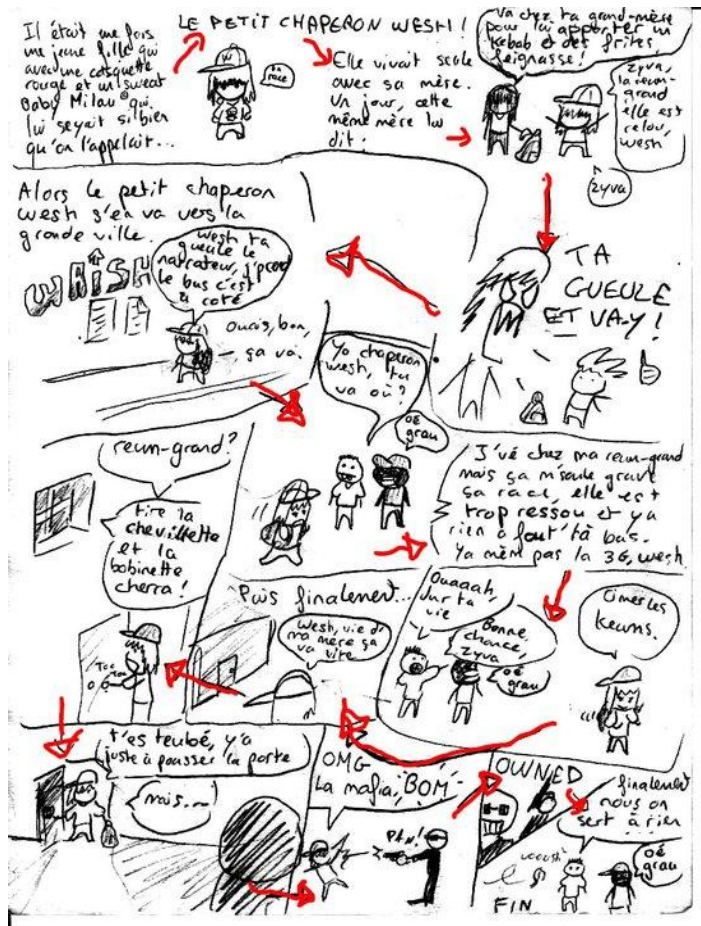 Il était une fois
une jeune fille qui
avec une casquette
rouge et un sweat
Baby Milau® qui
lui seyait si bien
qu'on l'appelait...
LE PETIT CHAPERON WESH !
W
ta
race
Elle vivait seule
avec sa mère.
Un jour, cette
même mère lui
dit :
Va chez ta grand-mère
pour lui apporter un
Kebab et des frites,
feignasse !
Zyva,
la reum-
grand
elle est
relou,
wesh
zyva
TA
GUEULE
ET VA-Y !
Alors le petit chaperon
wesh s'en va vers la
grande ville.
wesh ta
gueule le
narrateur, j'prend
le bus c'est
à coté
Ouais, bon,
ça va.
Yo chaperon
wesh, tu
va où ?
oé
grau
J'vé chez ma reum-grand
mais ça m'saule grave
sa race, elle est
trop ressou et ya
rien à fout' là bas.
Ya mêm pas la 3G, wesh
Ouaaah,
sur ta
vie
Bonne
chance,
zyva
oé
grau
Cimer les
keums.
Puis finalement...
West, vie d'
ma mère ça
va vite
reum-grand ?
tire la
chevillette
et la
bobinette
cherra !
Toc
Toc
t'es teubé, y'a
juste à pousser la porte
Mais...
OMG
La mafia,
BOM
PAN!
OWNED
finalement
nous on
sert à rien
oé
grau
FIN